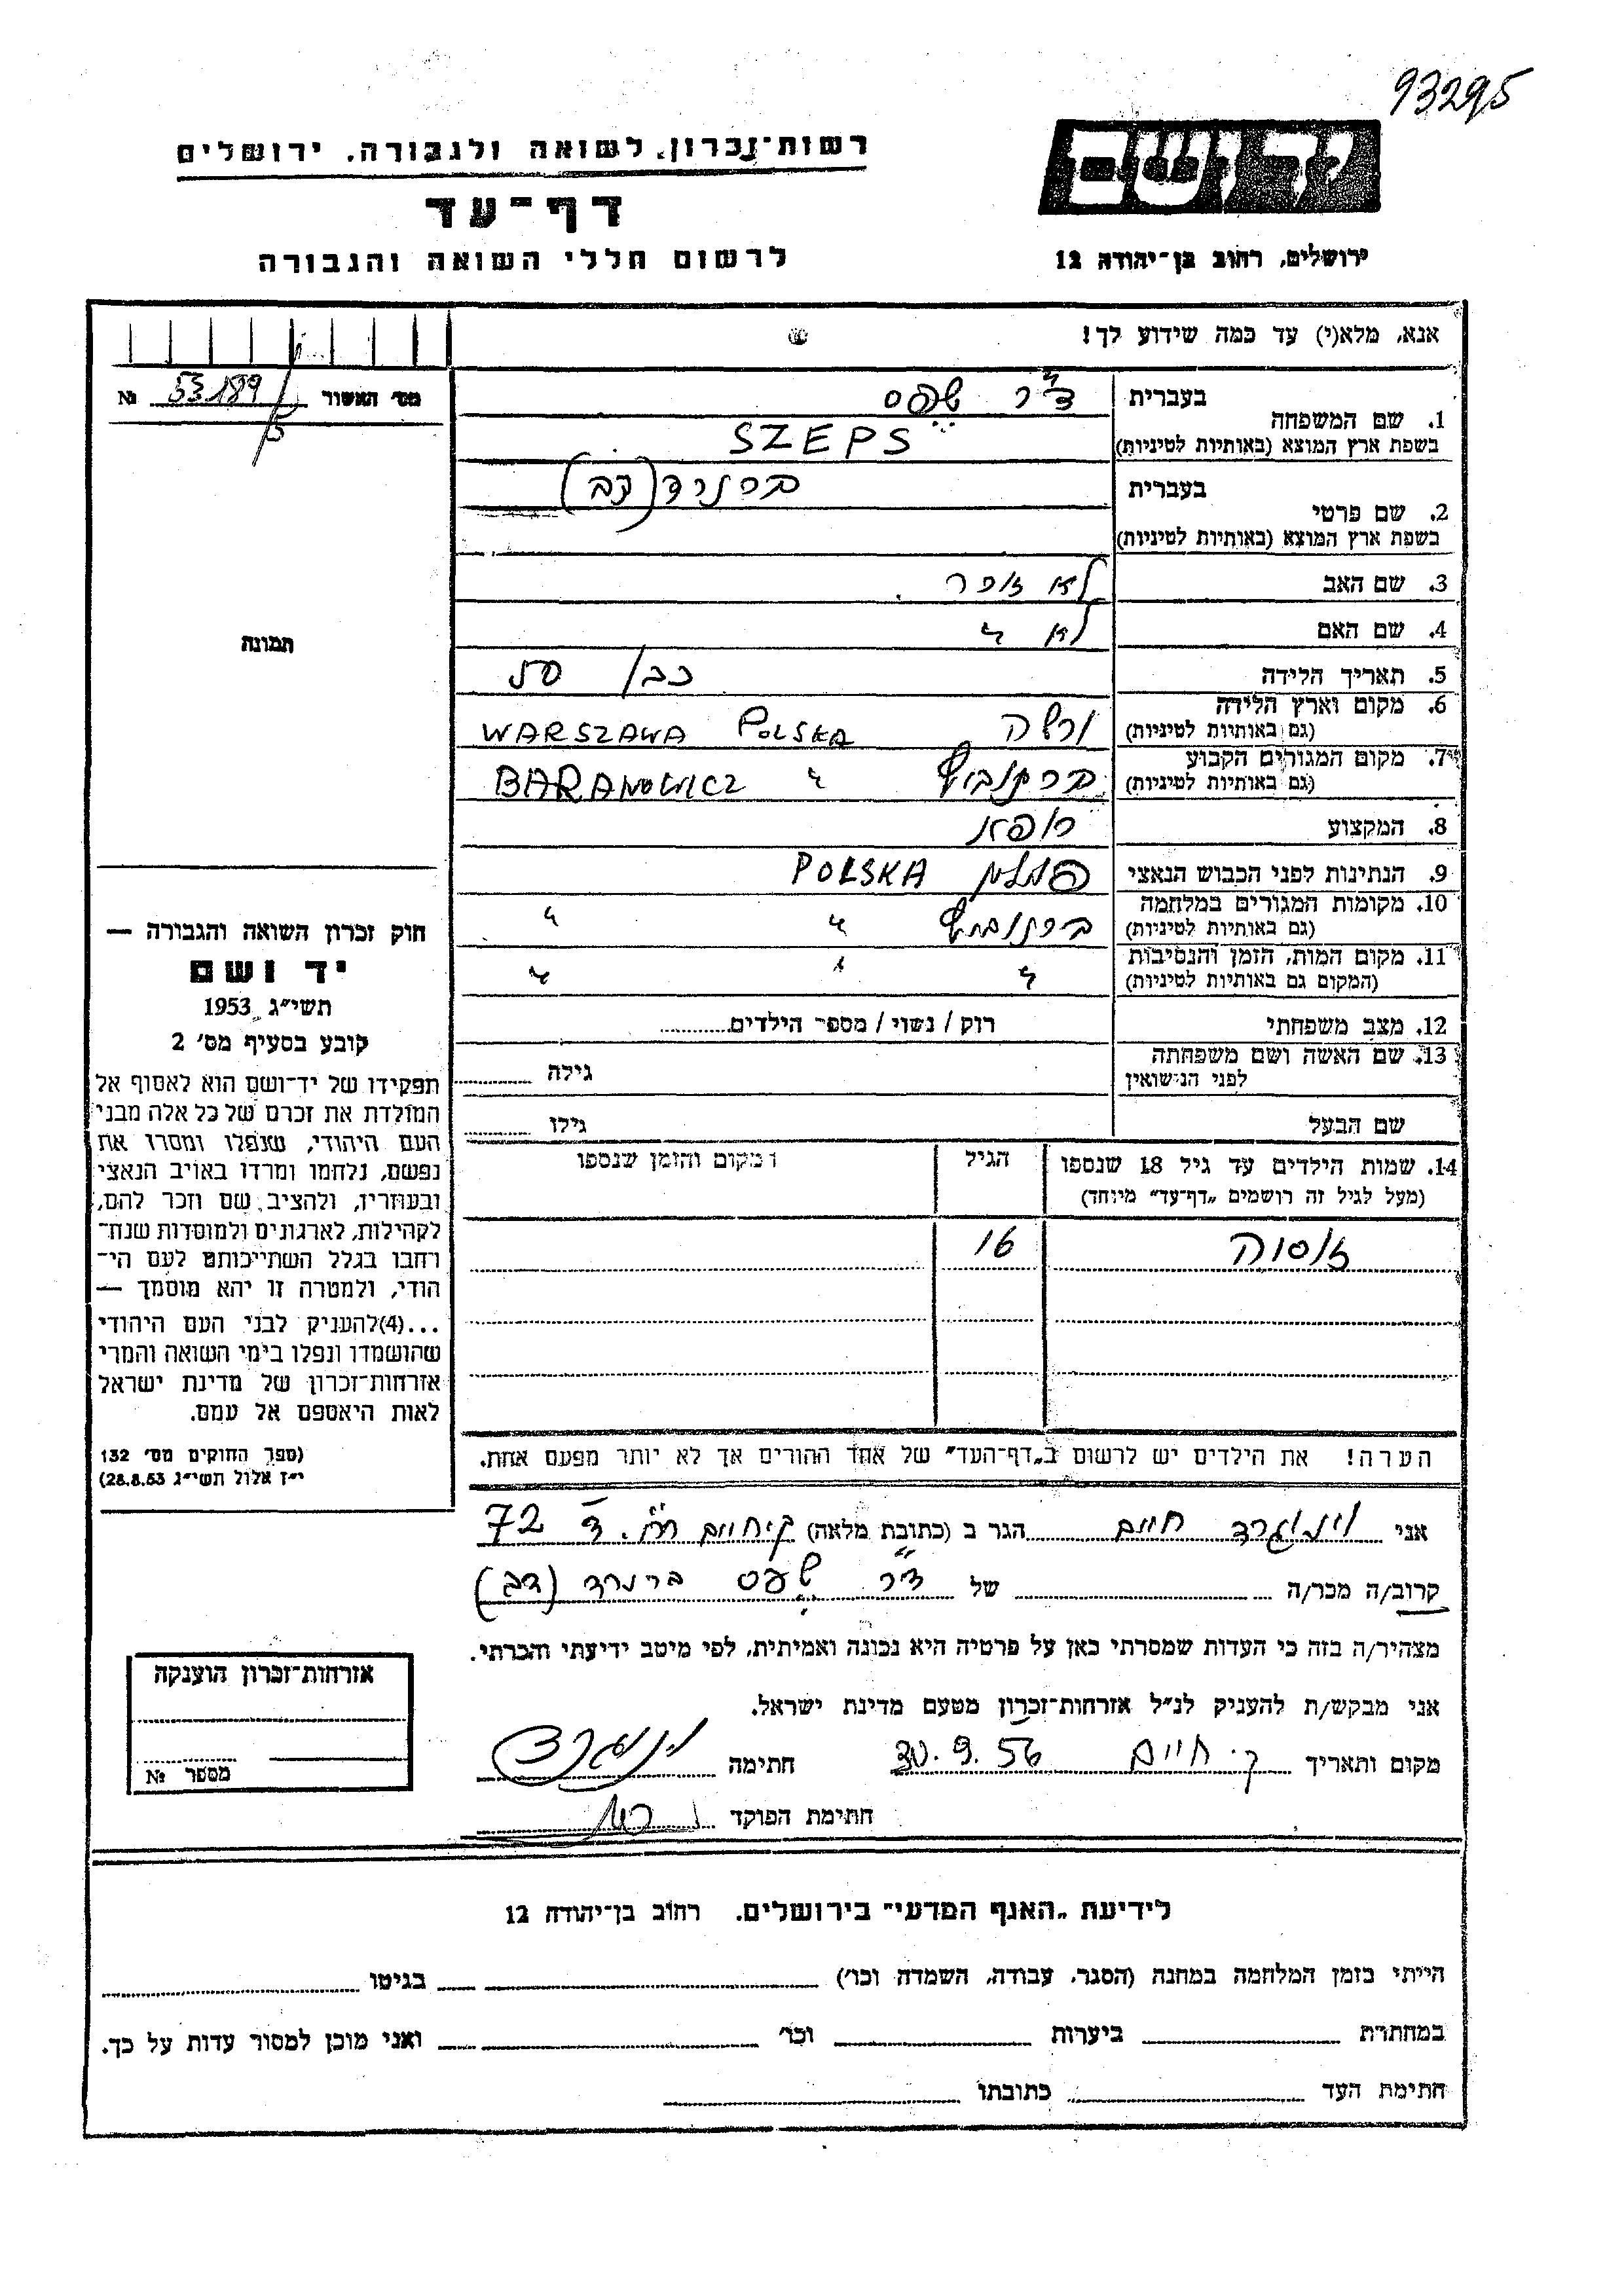 93295
יד ושם
ירושלים, רחוב בן־יהודה 12
רשות־זכרון לשואה ולגבורה, ירושלים
דף־עד
לרשום חללי השואה והגבורה
אנא, מלא(י) עד כמה שידוע לך!
מס' האשור 53189 №
1. שם המשפחה
בעברית ד"ר שפס
בשפת ארץ המוצא (באותיות לטיניות) SZEPS
2. שם פרטי
בעברית ברנרד (דב)
בשפת ארץ המוצא (באותיות לטיניות)
3. שם האב לא זוכר.
4. שם האם לא "
5. תאריך הלידה כבן 50
6. מקום וארץ הלידה ורשה WARSZAWA POLSKA
(גם באותיות לטיניות)
7. מקום המגורים הקבוע ברנוביץ " BARANOWICZ
(גם באותיות לטיניות)
8. המקצוע רופא
9. הנתינות לפני הכבוש הנאצי POLSKA
10. מקומות המגורים במלחמה ברנוביץ " "
(גם באותיות לטיניות)
11. מקום המות, הזמן והנסיבות " " "
(המקום גם באותיות לטיניות)
12. מצב משפחתי רוק / נשוי / מספר הילדים
13. שם האשה ושם משפחתה גילה
לפני הנישואין
שם הבעל גילו
14. שמות הילדים עד גיל 18 שנספו הגיל מקום והזמן שנספו
(מעל לגיל זה רושמים „דף־עד" מיוחד)
16
הערה! את הילדים יש לרשום ב„דף־העד" של אחד ההורים אך לא יותר מפעם אחת.
תמונה
חוק זכרון השואה והגבורה —
יד ושם
תשי"ג 1953
קובע בסעיף מס' 2
תפקידו של יד־ושם הוא לאסוף אל
המולדת את זכרם של כל אלה מבני
העם היהודי, שנפלו ומסרו את
נפשם, נלחמו ומרדו באויב הנאצי
ובעוזריו, ולהציב שם וזכר להם,
לקהילות, לארגונים ולמוסדות שנח־
רחבו בגלל השתייכותם לעם הי־
הודי, ולמטרה זו יהא מוסמך —
...(4)להעניק לבני העם היהודי
שהושמדו ונפלו בימי השואה והמרי
אזרחות־זכרון של מדינת ישראל
לאות היאספם אל עמם.
(ספר החוקים מס' 132
י"ז אלול תשי"ג 28.8.53)
אני וינוגרד חיים הגר ב (כתובת מלאה) ק. חיים 72
קרוב/ה מכר/ה של ד"ר שפס ברנרד (דב)
מצהיר/ה בזה כי העדות שמסרתי כאן על פרטיה היא נכונה ואמיתית, לפי מיטב ידיעתי והכרתי.
אני מבקש/ת להעניק לנ"ל אזרחות־זכרון מטעם מדינת ישראל.
מקום ותאריך ק. חיים 30.9.56 חתימה וינוגרד
חתימת הפוקד
אזרחות־זכרון הוענקה
מספר №
לידיעת „האגף המדעי" בירושלים, רחוב בן־יהודה 12
הייתי בזמן המלחמה במחנה (הסגר, עבודה, השמדה וכו') בגיטו
במחתרת ביערות וכו' ואני מוכן למסור עדות על כך.
חתימת העד כתובתו